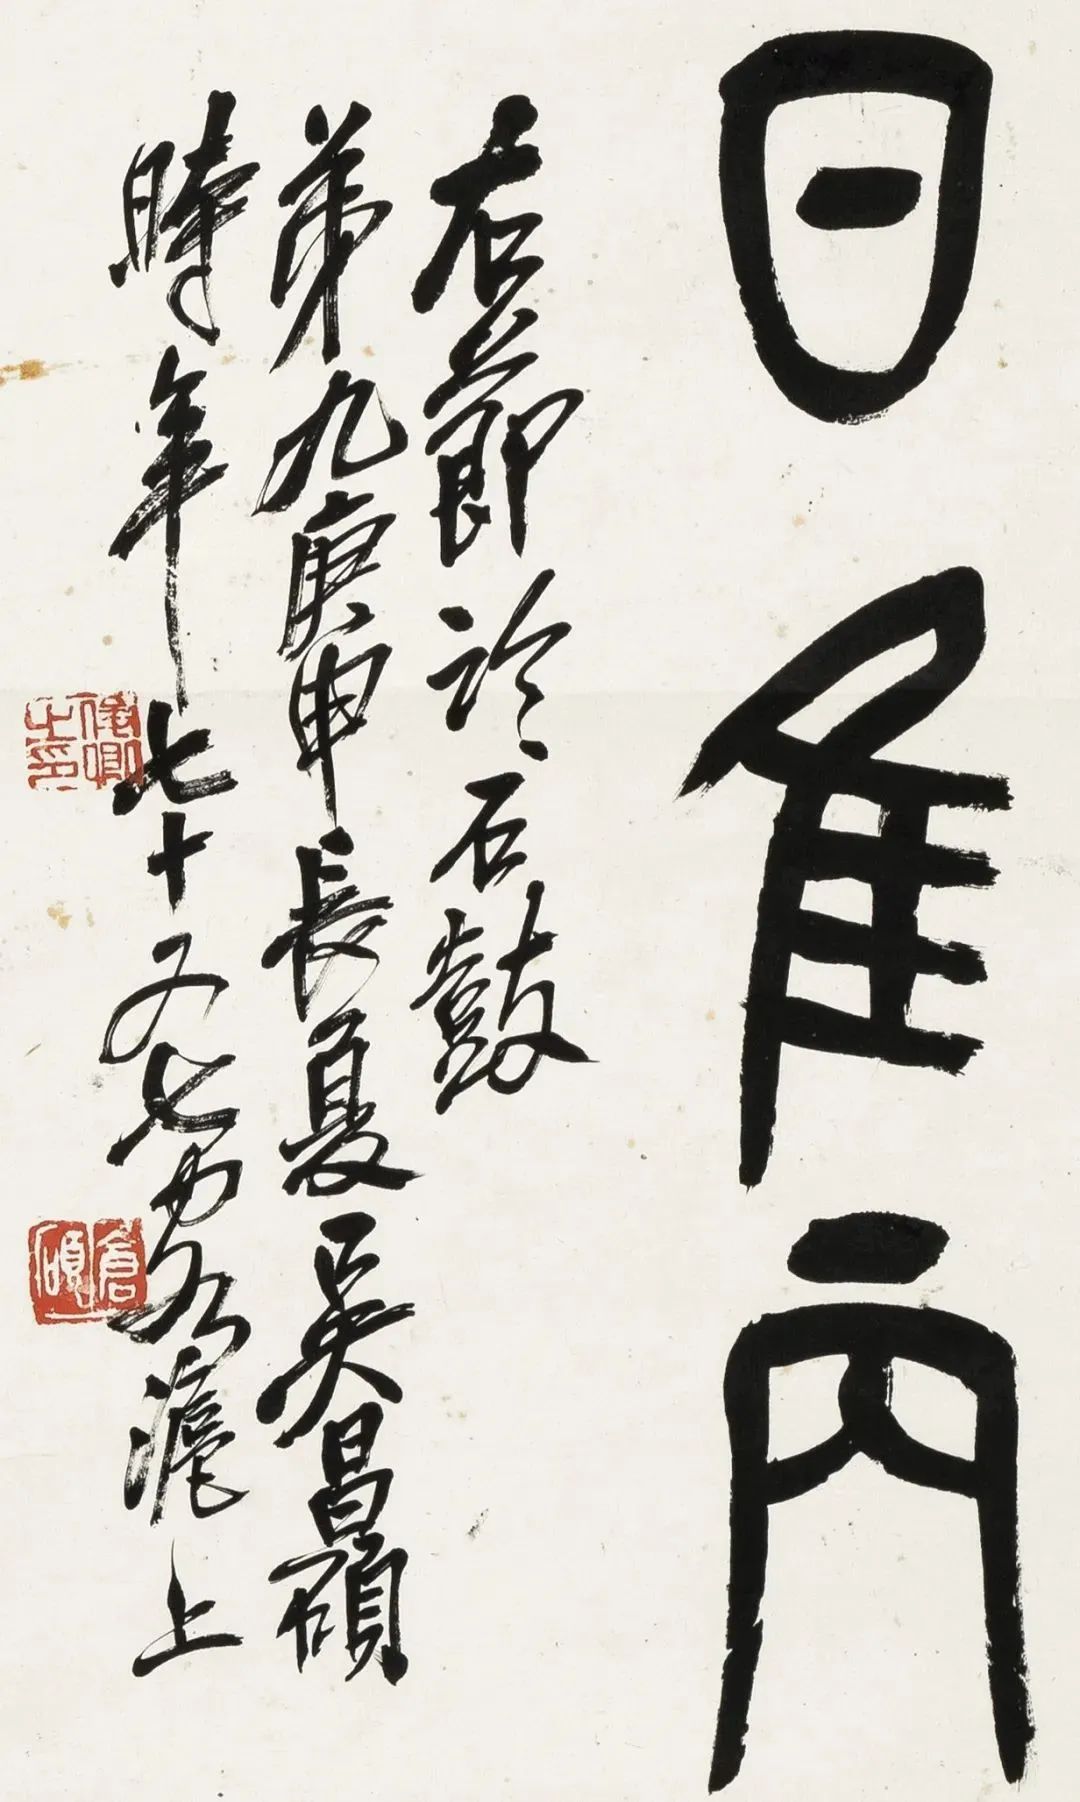 日隹丙
右節臨石鼓
弟九庚申長夏吳昌碩
時年七十又七滬上
俊卿之印
倉碩